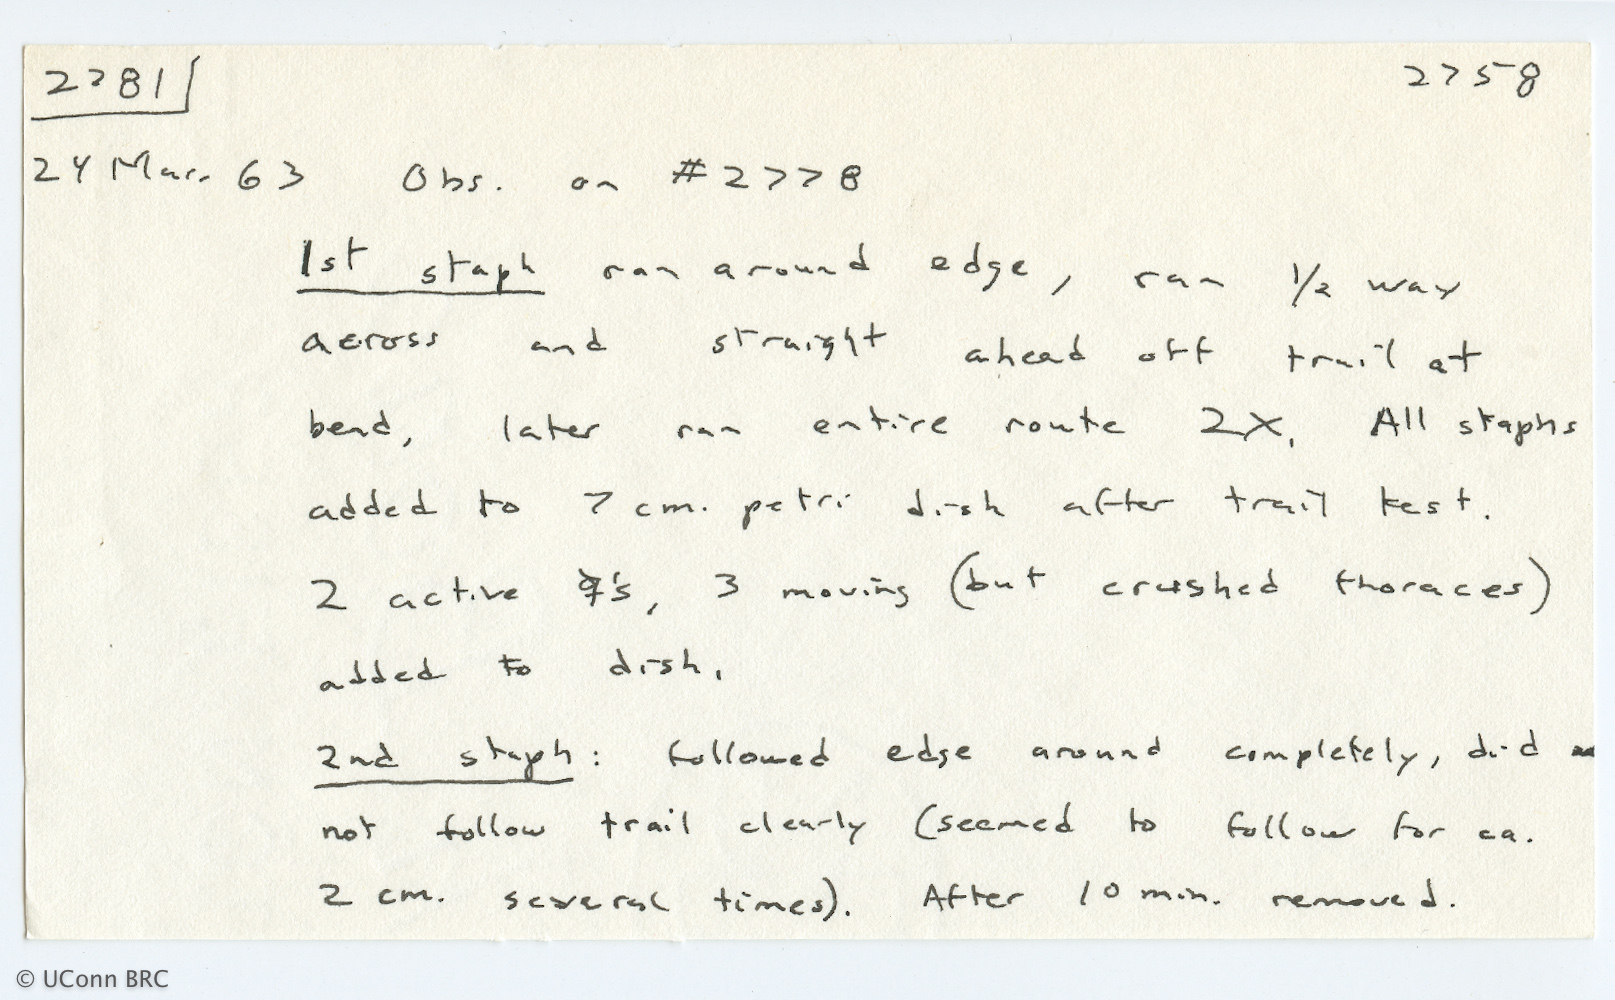 2781 2758
24 Mar. 63 Obs. on #2778
1st staph ran around edge, ran 1/2 way
across and straight ahead off trail at
bend, later ran entire route 2X. All staphs
added to 7 cm. petri dish after trail test.
2 active ☿'s, 3 moving (but crushed thoraces)
added to dish.
2nd staph: followed edge around completely, did
not follow trail clearly (seemed to follow for ca.
2 cm. several times). After 10 min. removed.
© UConn BRC